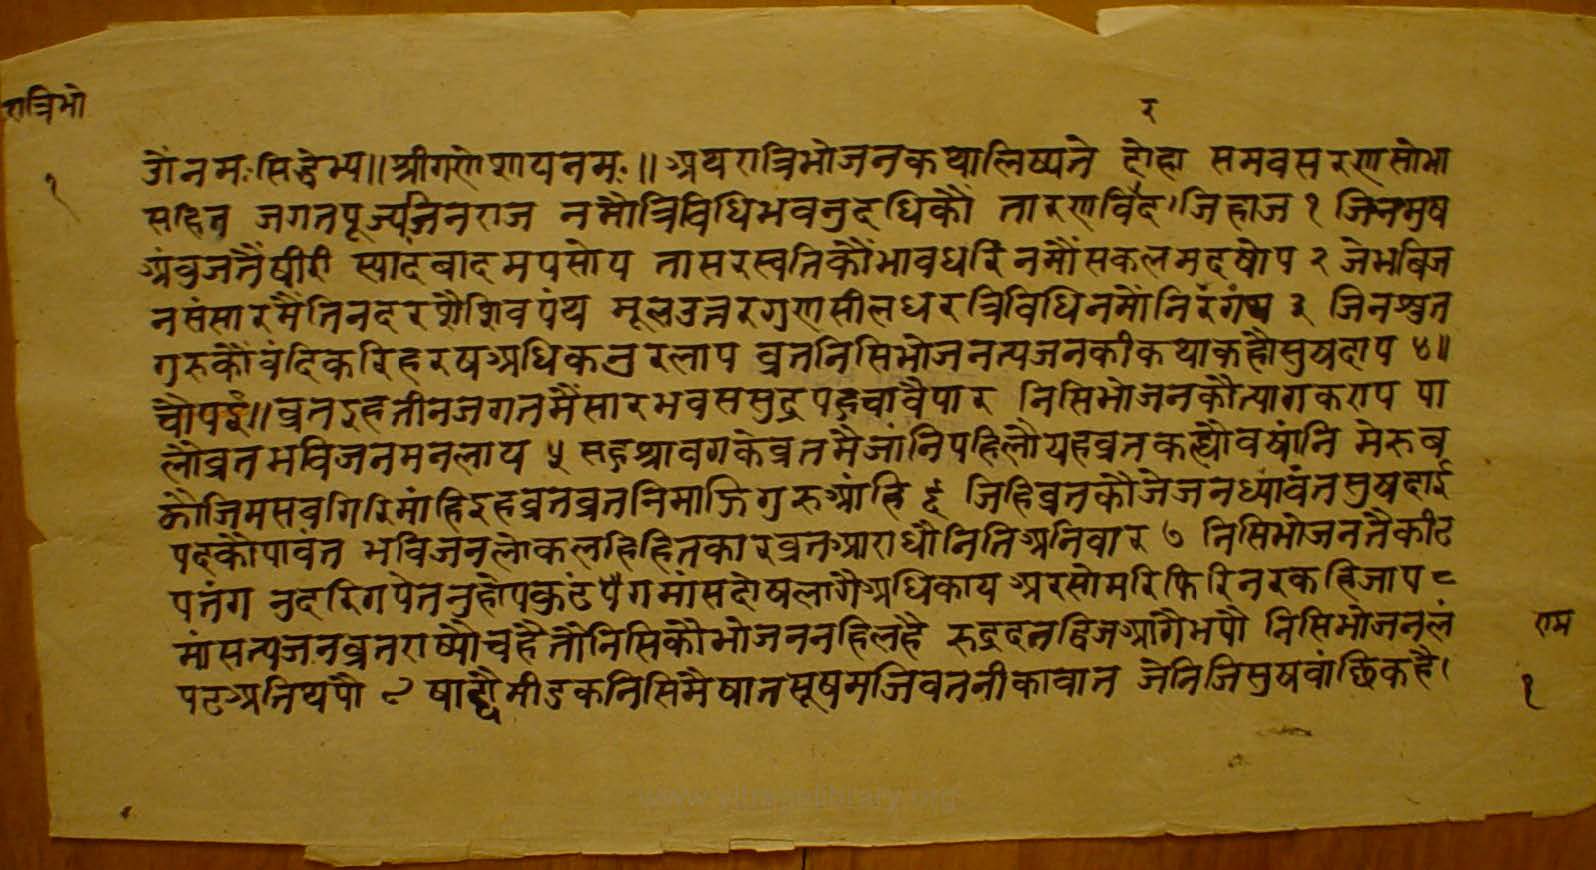 रात्रिभो
१
र
उेंनमःसिद्धेभ्य॥श्रीगणेशायनमः॥अथरात्रिभोजनकथालिष्यते दोहा समवसरणसोभा
सहित जगतपूज्यजिनराज नमौंत्रिविधिभवनुदधिकौं तारणविरद।जिहाज १ जिनमुष
अंवुजतैंषीरी स्यादबादमपसोप तासरस्वतिकौंभावधरि नमौंसकलमदषोप २ जेभविज
नसंसारमैतिनदरशैशिवपंथ मूलउत्तरगुणसीलधर त्रिविधिनमौंनिरंगंथ ३ जिनश्रुत
गुरुकौंवंदिकरिहरषअधिकनुरलाप व्रतनिसिभोजनत्यजनकीकथाकहौसुषदाप ४॥
चौपई॥व्रतइहतीनजगतमैंसारभवससमुद्रपहुचावैपार निसिभोजनकौत्यागकराप पा
लौव्रतभविजनमनलाय ५ सहुश्रावगकेव्रतमैजांनिपहिलौयहव्रतकह्यौवषांनि मेरुब
कौजिमसबगिरिमांहिइहव्रतव्रतनिमाजिगुरुआंहि ६ जिहिव्रतकौजेजनध्यावंतसुषदाई
पदकौपावंत भविजनलोकलहिहितकारव्रतआराधौनितिअनिवार ७ निसिभोजनतैकीट
पतंग नुदरिगपेतनुहोपकुटंपैगमांसदोषलागैअधिकाय अरसोमरिफिरिनरकहिजाप ८
मांसत्यजनव्रतराष्यौचहैतौनिसिकौभोजननहिलहै रुद्रदतद्विजआगैभपौ निसिभोजनलं
पटअतिथपौ ९ षाद्यौमीडकनिसिमैषातसूषमजिवतनीकावात जेनिजिसुषवांछिकहै।
राम
१